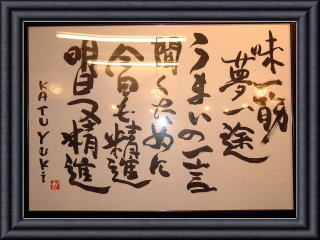 味一筋
夢一途
うまいの一言
聞くために
今日も精進
明日又精進
KATUYUKi
か